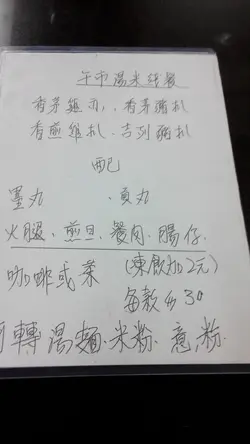 午市湯米線餐
香茅雞扒、香茅豬扒
香煎雞扒、吉列豬扒
配
墨丸、貢丸
火腿、煎旦、餐肉、腸仔
咖啡或茶 (凍飲加2元)
每款 30
轉湯麵、米粉、意粉